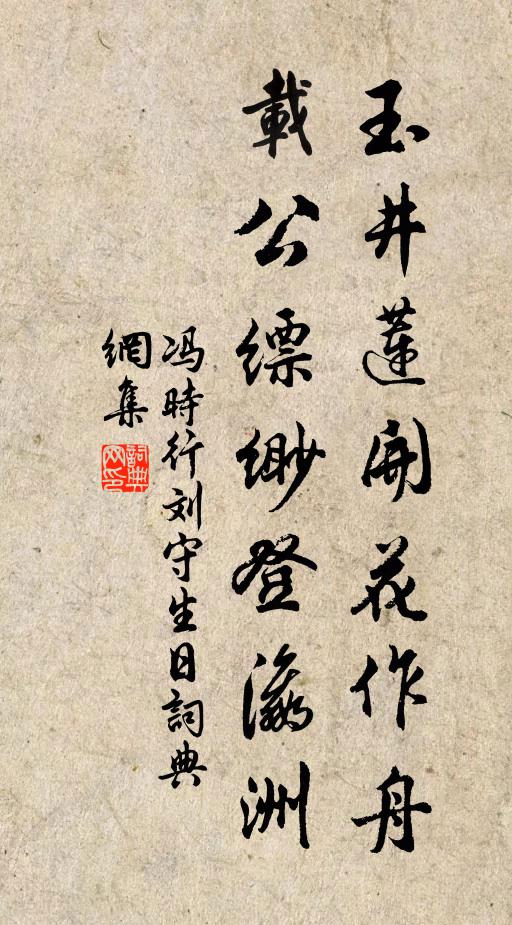 玉井蓮開花作舟
載公縹緲登瀛洲
冯時行刘守生日詞典
網集
詞典
网印